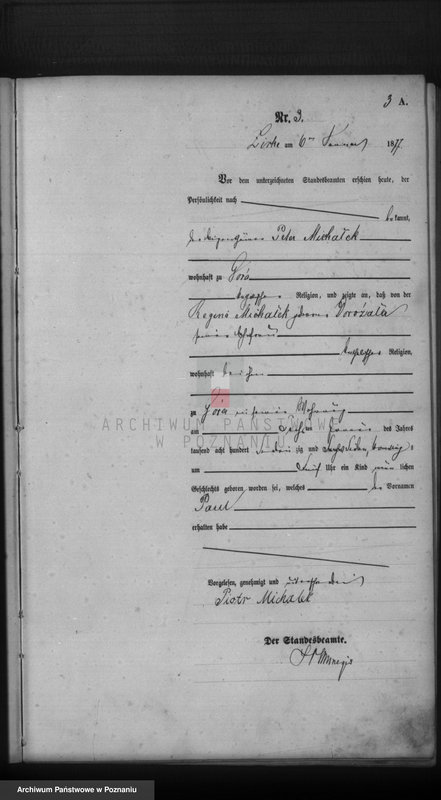 3 A.
Nr. 3.
Zirke am 6ten Januar 1877.
Vor dem unterzeichneten Standesbeamten erschien heute, der
Persönlichkeit nach
be kannt,
der Eigenthümer Peter Michałek
wohnhaft zu Góra
Religion, und zeigte an, daß von der
Regina Michałek geborene
seiner Ehefrau
katholischer Religion,
wohnhaft bei ihm
zu Gora in seiner Wohnung
am des Jahres
tausend acht hundert sieben zig und
um Uhr ein Kind männ lichen
Geschlechts geboren worden sei, welches den Vornamen
Paul
erhalten habe
Vorgelesen, genehmigt und unterschrieben
Piotr Michałek
Der Standesbeamte.
ARCHIWUM PAŃSTWOWE
W POZNANIU
Archiwum Państwowe w Poznaniu